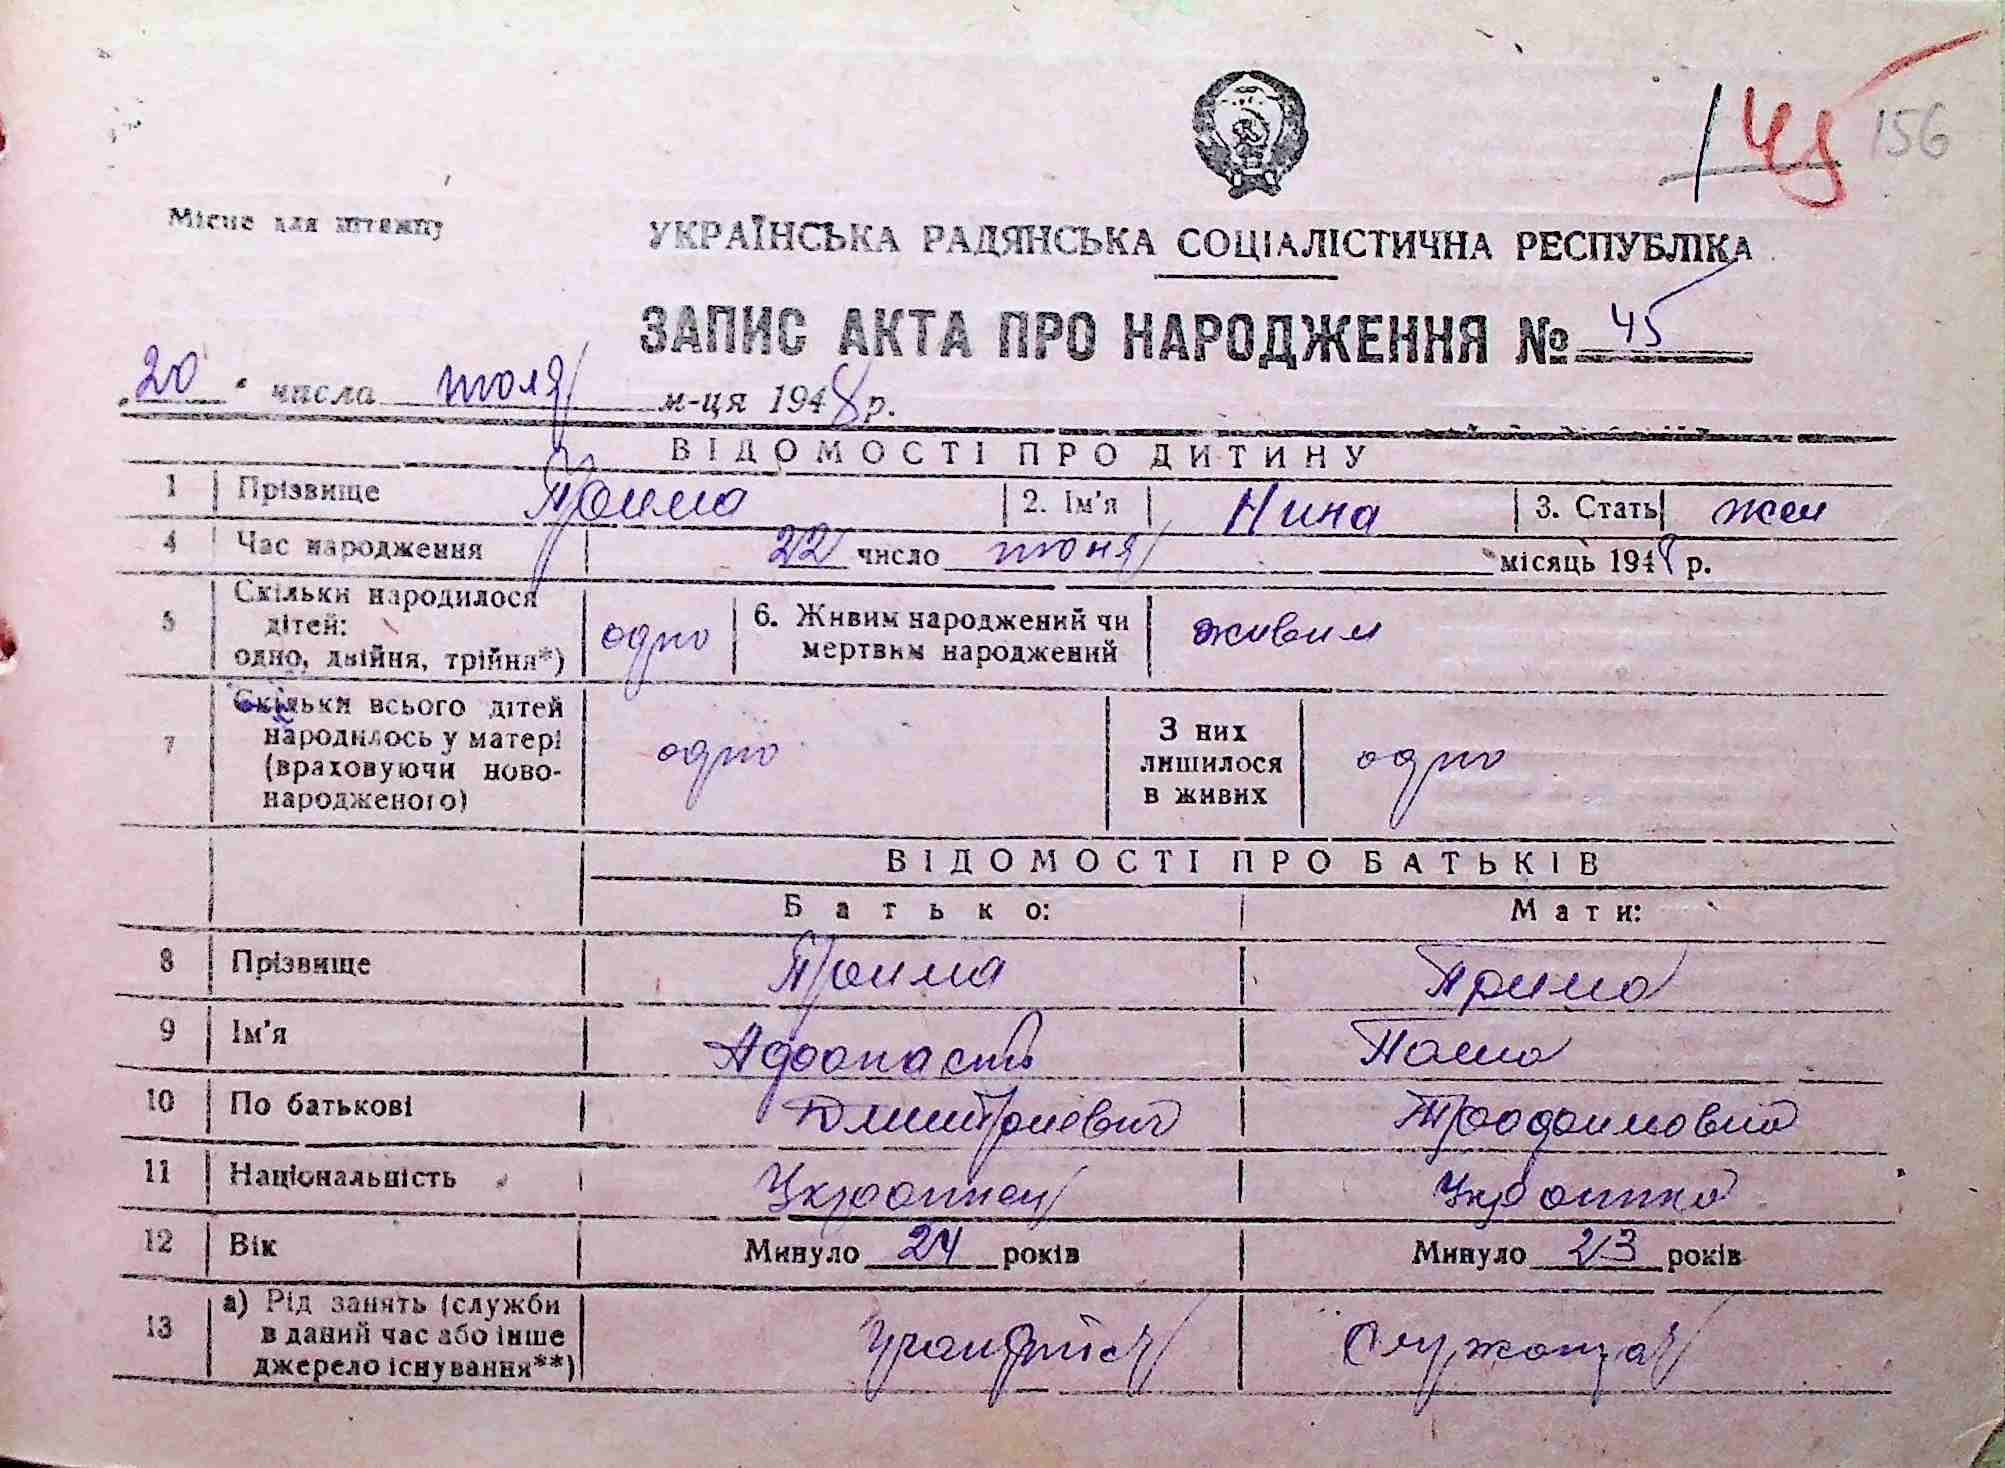 145 156
Місце для штампу
УКРАЇНСЬКА РАДЯНСЬКА СОЦІАЛІСТИЧНА РЕСПУБЛІКА
ЗАПИС АКТА ПРО НАРОДЖЕННЯ № 45
„20" числа июля м-ця 1948 р.
ВІДОМОСТІ ПРО ДИТИНУ
1 Прізвище Прима 2. Ім'я Нина 3. Стать жен
4 Час народження 22 число июня місяць 1948 р.
5 Скільки народилося
дітей:
одно, двійня, трійня*) одно 6. Живим народжений чи
мертвим народжений живим
7 Скільки всього дітей
народилось у матері
(враховуючи ново-
народженого) одно З них
лишилося
в живих одно
ВІДОМОСТІ ПРО БАТЬКІВ
Батько: Мати:
8 Прізвище Прима Прима
9 Ім'я
10 По батькові Дмитриевич
11 Національність Украинец Украинка
12 Вік Минуло 24 років Минуло 23 років
13 а) Рід занять (служби
в даний час або інше
джерело існування**) Учащийся Служащая